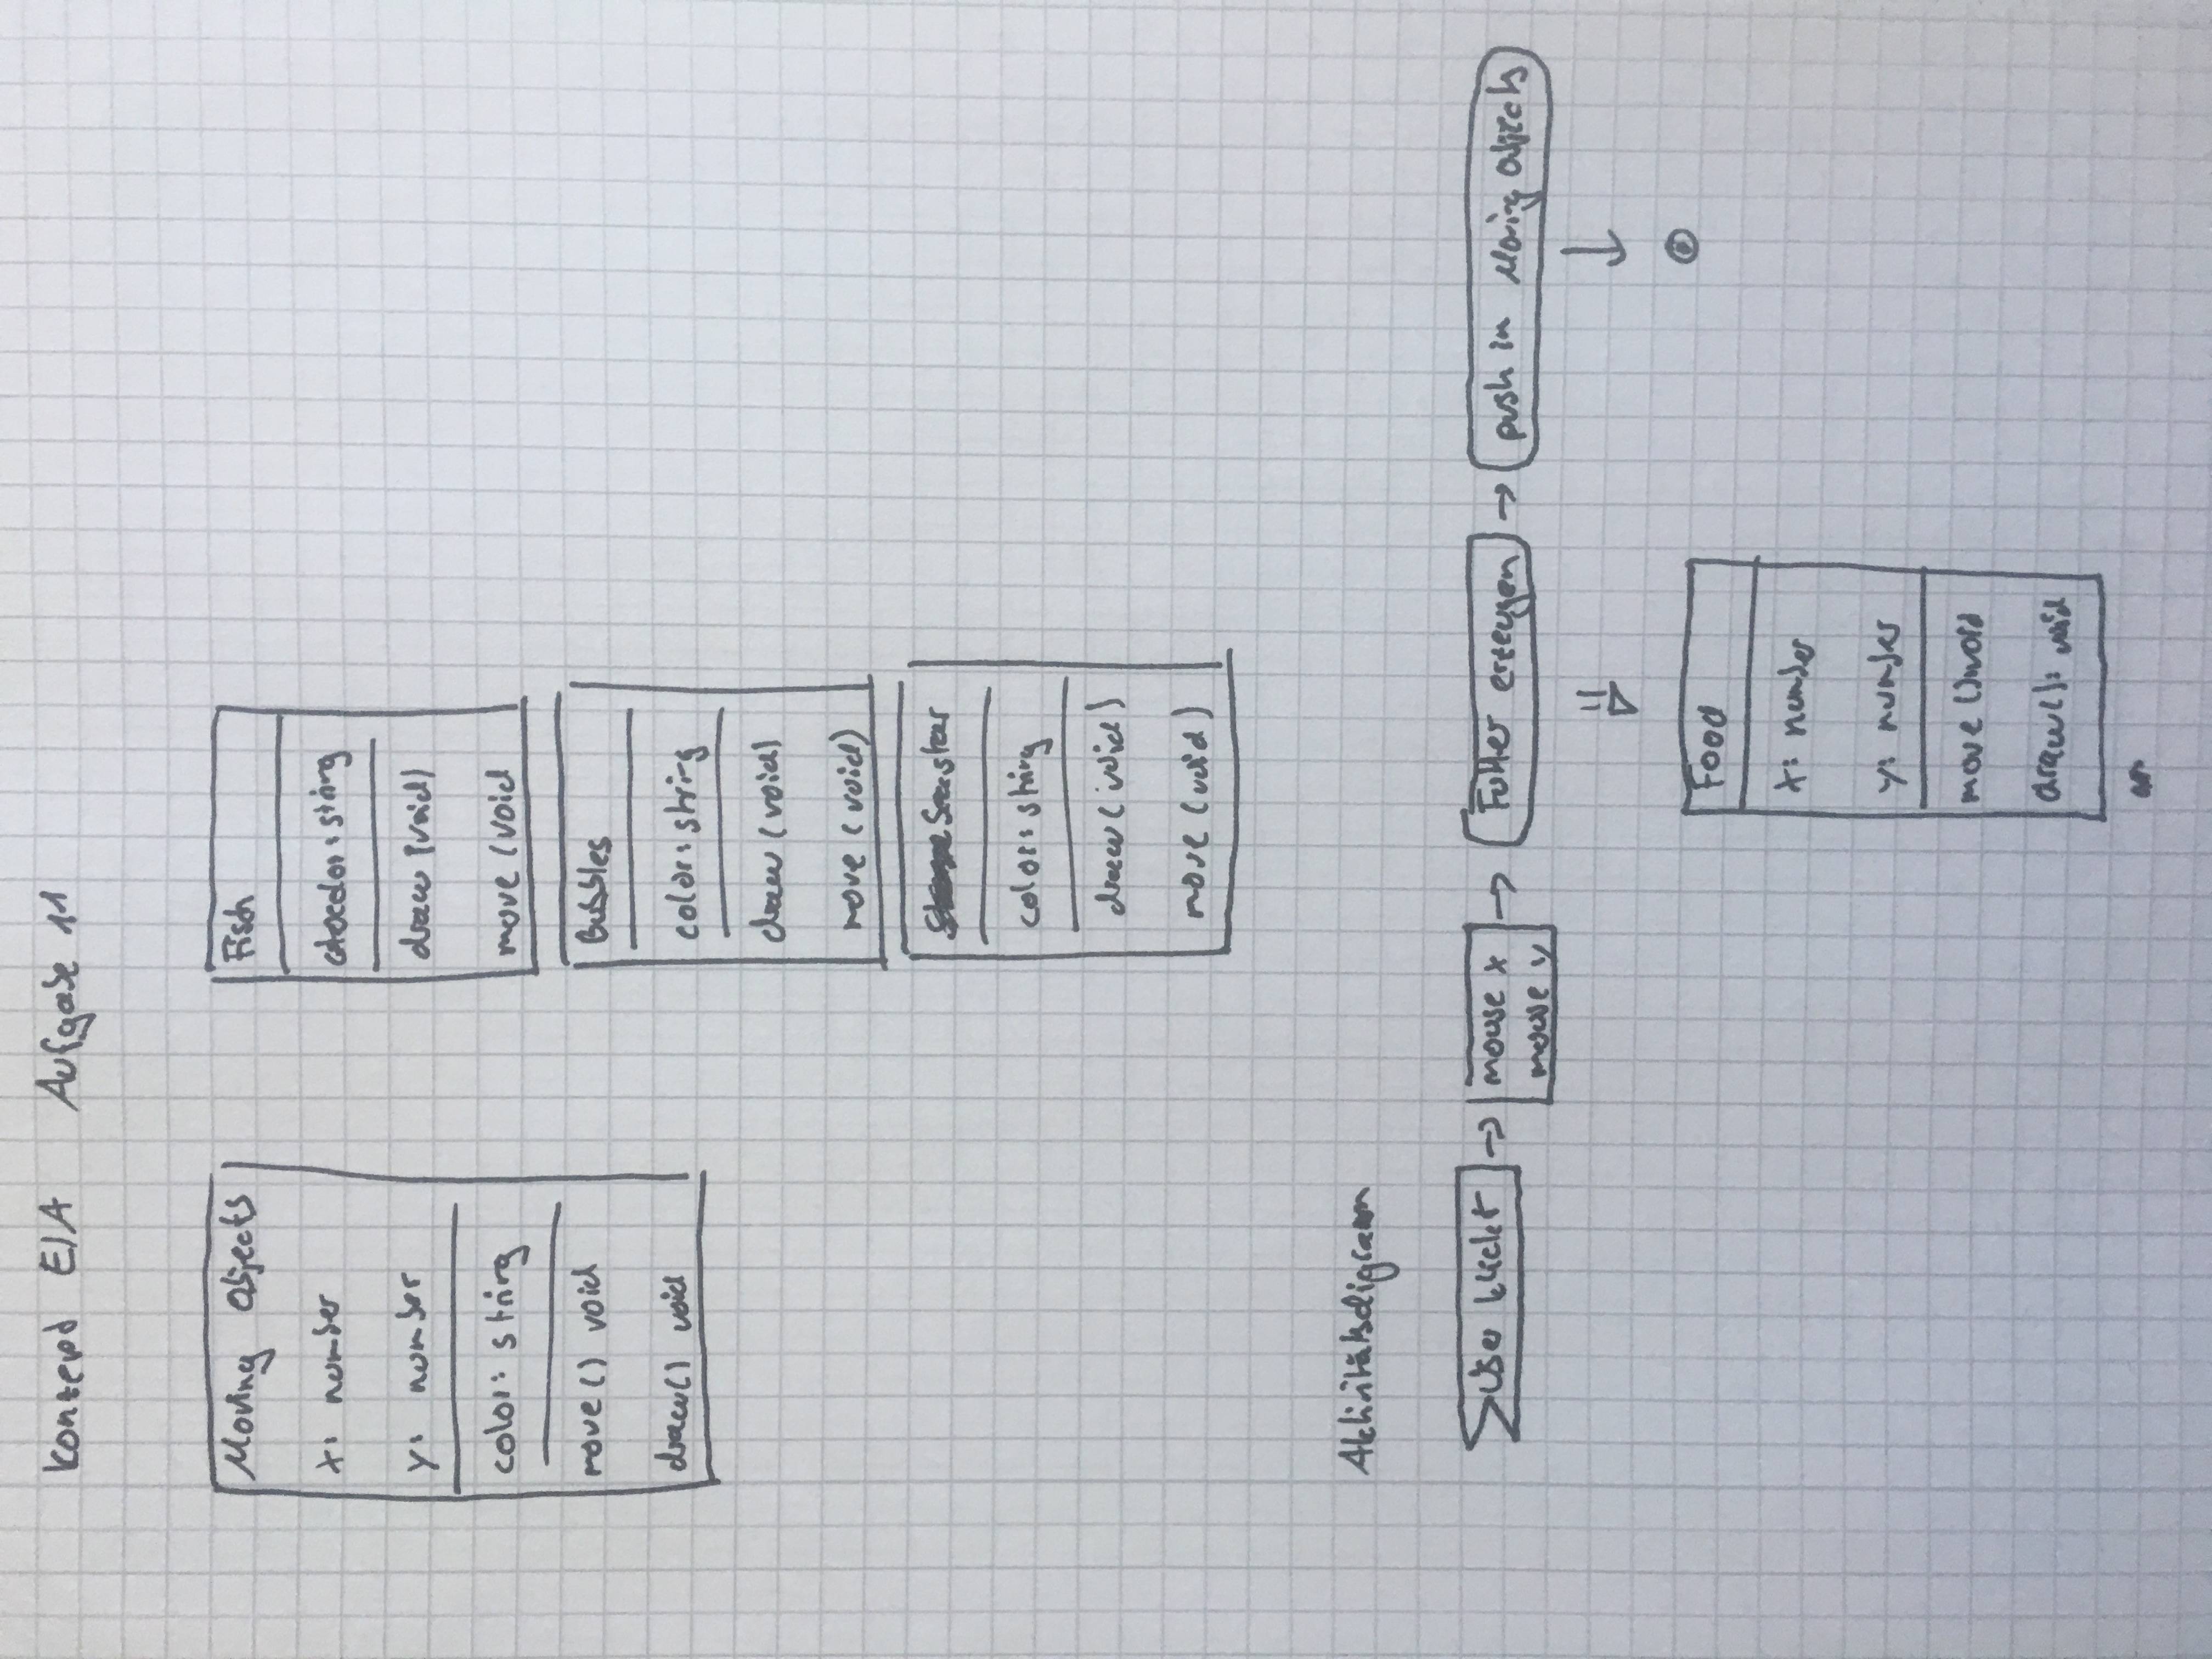 Konzept EIA Aufgabe 11
Moving Objects
x: number
y: number
color: string
move() void
draw() void
Fisch
color: string
draw (void)
move (void
Bubbles
color: string
draw (void)
move (void)
Seastar
color: string
draw (void)
move (void)
Aktivitätsdigramm
User klickt
mouse x
mouse y
Futter erzeugen
push in Moving Objects
Food
x: number
y: number
move () void
draw(): void